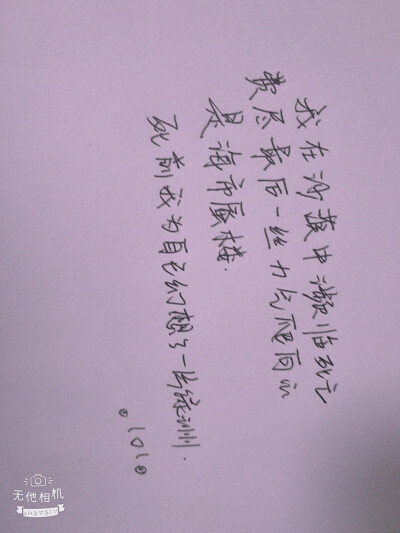 我在沙漠中濒临死亡
费尽最后一丝力气爬向的
是海市蜃楼.
死前我为自己幻想了一片绿洲.
。101。
无他相机